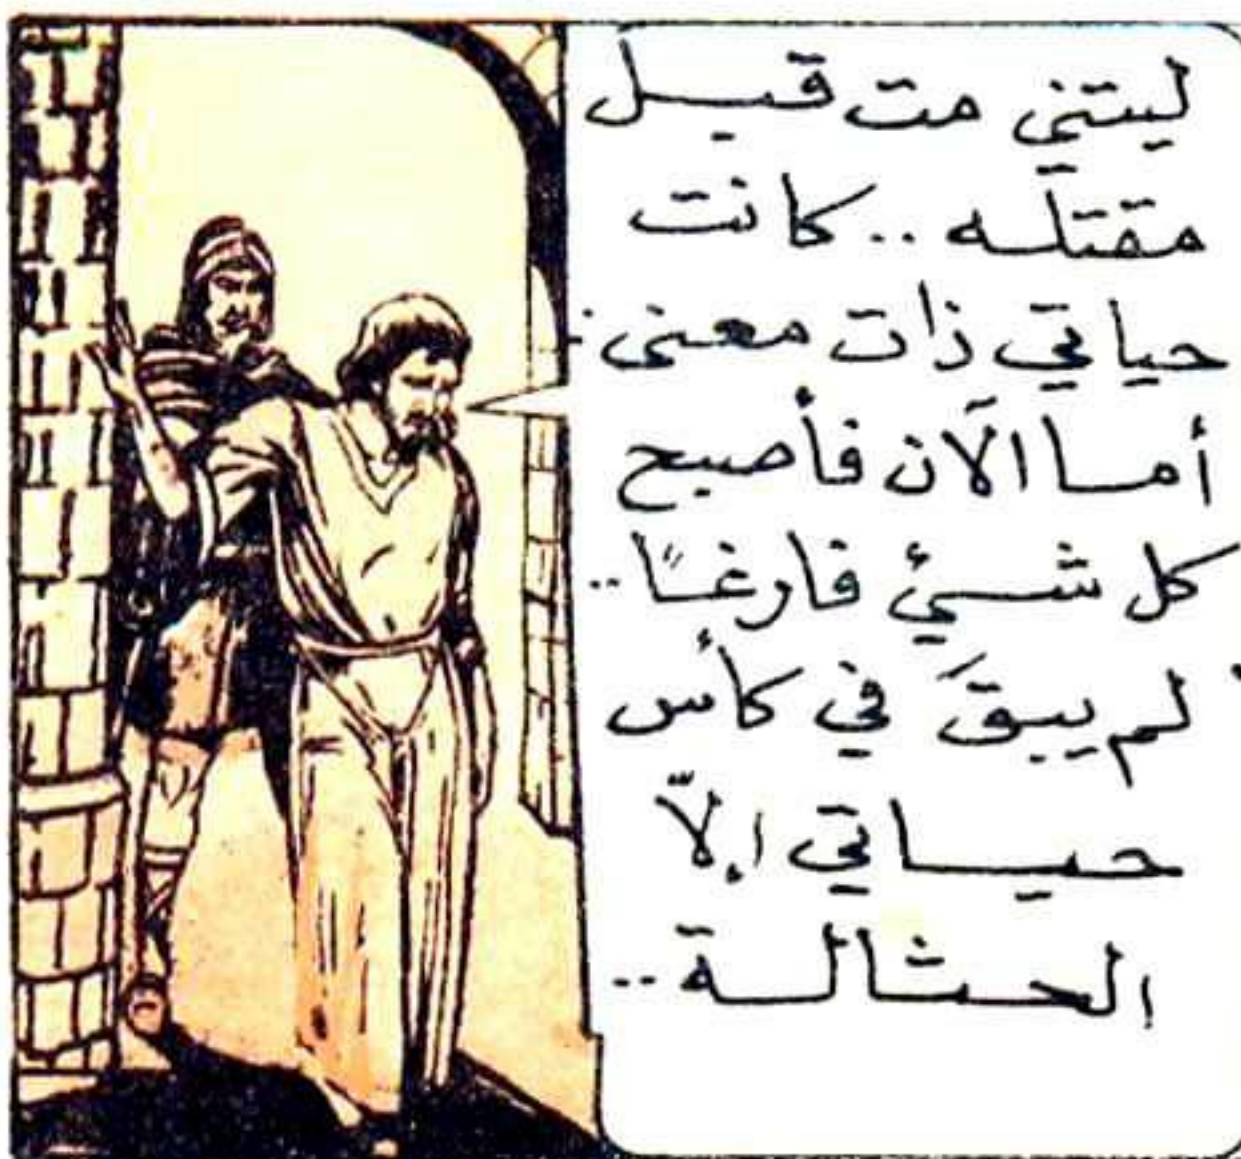 ليتني مت قبل
مقتله .. كانت
حياتي ذات معنى .
أما الآن فأصبح
كل شئ فارغًا ..
لم يبقَ في كأس
حياتي إلّا
الحثالة ..